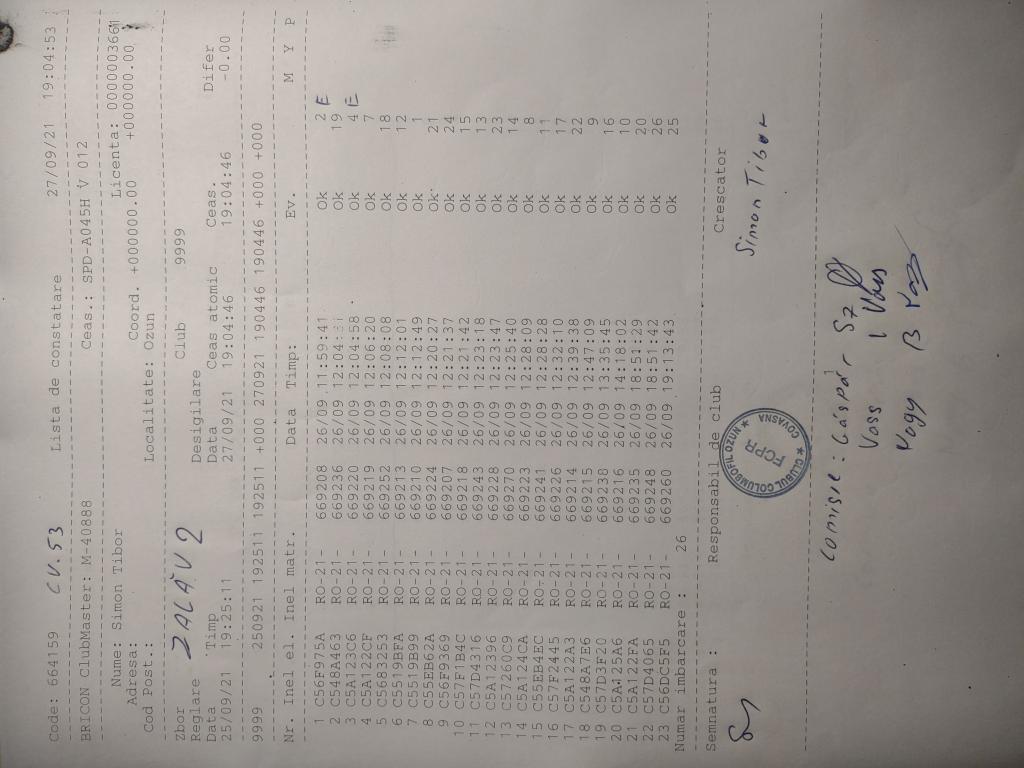 Code: 664159 CV.53 Lista de constatare 27/09/21 19:04:53
BRICON ClubMaster: M-40888 Ceas.: SPD-A045H V 012
Nume: Simon Tibor Licenta: 0000003661
Adresa: Coord. +000000.00 +0000000.00
Cod Post.: Localitate: Ozun
Zbor ZALAU 2 Club 9999
Reglare Desigilare
Data Timp Data Ceas atomic Ceas. Difer
25/09/21 19:25:11 27/09/21 19:04:46 19:04:46 -0.00
9999 250921 192511 192511 +000 270921 190446 190446 +000 +000
Nr. Inel el. Inel matr. Data Timp: Ev. M Y P
1 C56F975A RO-21- 669208 26/09 11:59:41 Ok 2 E
2 C548A463 RO-21- 669236 26/09 12:04: Ok 19
3 C5A123C6 RO-21- 669220 26/09 12:04:58 Ok 4 E
4 C5A122CF RO-21- 669219 26/09 12:06:20 Ok 7
5 C5683253 RO-21- 669252 26/09 12:08:08 Ok 18
6 C5519BFA RO-21- 669213 26/09 12:12:01 Ok 12
7 C5519B99 RO-21- 669210 26/09 12:12:49 Ok 1
8 C55EB62A RO-21- 669224 26/09 12:20:27 Ok 21
9 C56F9369 RO-21- 669207 26/09 12:21:37 Ok 24
10 C57F1B4C RO-21- 669218 26/09 12:21:42 Ok 15
11 C57D4316 RO-21- 669243 26/09 12:23:18 Ok 13
12 C5A12396 RO-21- 669228 26/09 12:23:47 Ok 23
13 C57260C9 RO-21- 669270 26/09 12:25:40 Ok 14
14 C5A124CA RO-21- 669223 26/09 12:28:09 Ok 8
15 C55EB4EC RO-21- 669241 26/09 12:28:28 Ok 11
16 C57F2445 RO-21- 669226 26/09 12:32:10 Ok 17
17 C5A122A3 RO-21- 669214 26/09 12:39:38 Ok 22
18 C548A7E6 RO-21- 669215 26/09 12:47:09 Ok 9
19 C57D3F20 RO-21- 669238 26/09 13:35:45 Ok 16
20 C5A125A6 RO-21- 669216 26/09 14:18:02 Ok 10
21 C5A122FA RO-21- 669235 26/09 18:51:29 Ok 20
22 C57D4065 RO-21- 669248 26/09 18:51:42 Ok 26
23 C56DC5F5 RO-21- 669260 26/09 19:13:43 Ok 25
Numar imbarcare : 26
Semnatura : Responsabil de club Crescator
Simon Tibor
CLUBUL COLUMBOFIL OZUN
FCPR
COVASNA
Comisie: Gáspár SZ
Voss I Voss
Kogy B